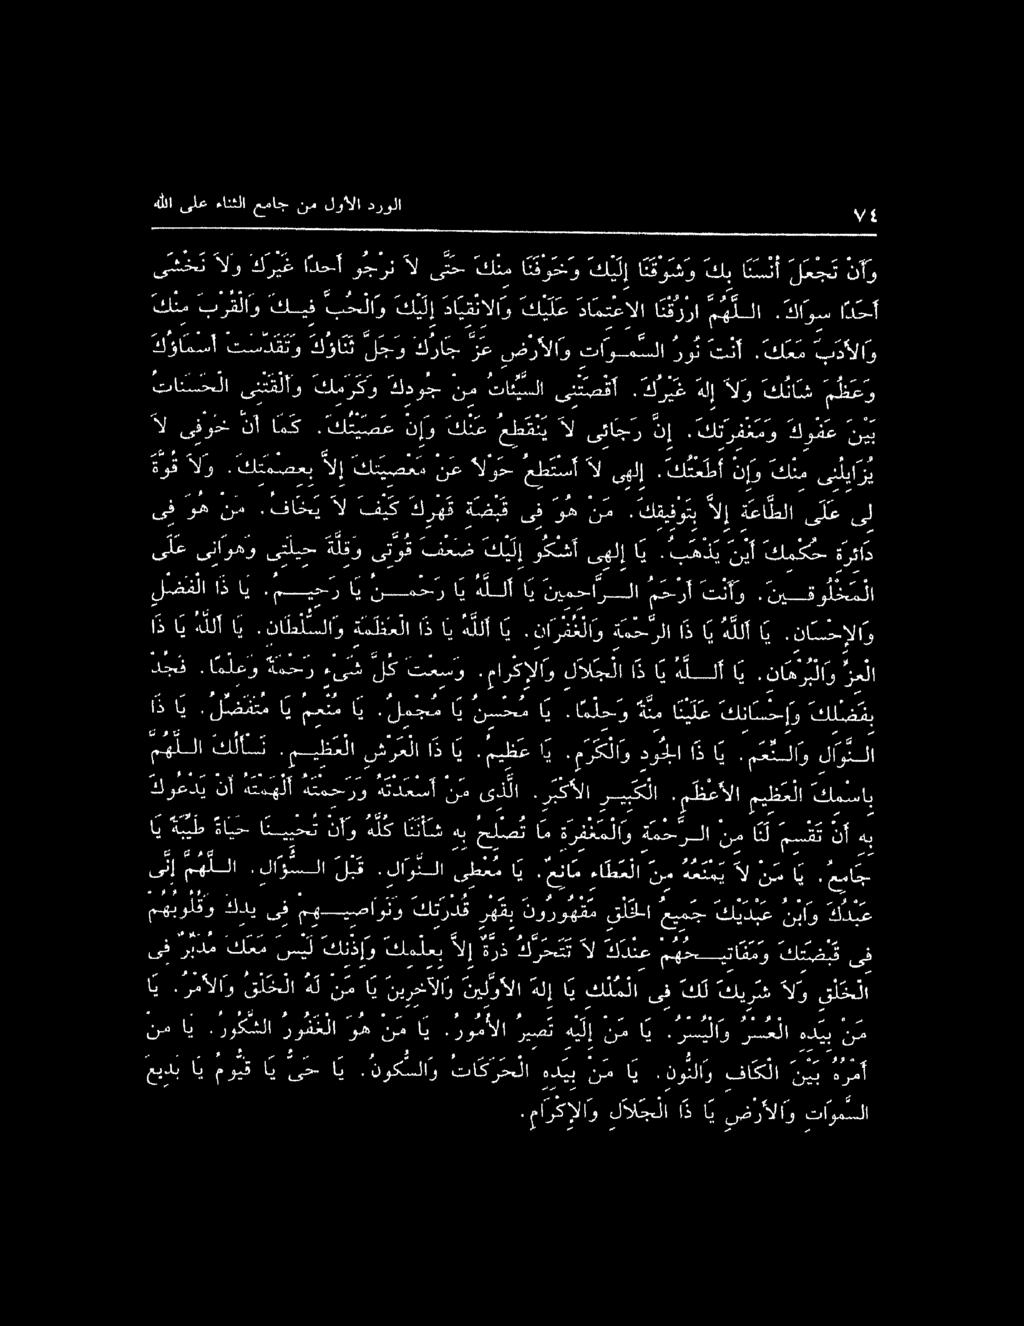 ٧٤ الورد الأول من جامع الثناء على الله
وَأَنْ تَجْعَلَ أُنْسَنَا بِكَ وَشَوْقَنَا إِلَيْكَ وَخَوْفَنَا مِنْكَ حَتَّى لاَ نَرْجُو أَحَدًا غَيْرَكَ وَلاَ نَخْشَى
أَحَدًا سِوَاكَ. اللَّهُمَّ ارْزُقْنَا الاِعْتِمَادَ عَلَيْكَ وَالاِنْقِيَادَ إِلَيْكَ وَالْحُبَّ فِيكَ وَالْقُرْبَ مِنْكَ
وَالأَدَبَ مَعَكَ. أَنْتَ نُورُ السَّمَوَاتِ وَالأَرْضِ عَزَّ جَارُكَ وَجَلَّ ثَنَاؤُكَ وَتَقَدَّسَتْ أَسْمَاؤُكَ
وَعَظُمَ شَأْنُكَ وَلاَ إِلَهَ غَيْرُكَ. أَقْصَتْنِى السَّيِّئَاتُ مِنْ جُودِكَ وَكَرَمِكَ وَأَلْقَتْنِى الْحَسَنَاتُ
بَيْنَ عَفْوِكَ وَمَغْفِرَتِكَ. إِنَّ رَجَائِى لاَ يَنْقَطِعُ عَنْكَ وَإِنْ عَصَيْتُكَ. كَمَا أَنَّ خَوْفِى لاَ
يُزَايِلُنِى مِنْكَ وَإِنْ أَطَعْتُكَ. إِلَهِى لاَ أَسْتَطِعُ حَوْلاً عَنْ مَعْصِيَتِكَ إِلاَّ بِعِصْمَتِكَ. وَلاَ قُوَّةَ
لِى عَلَى الطَّاعَةِ إِلاَّ بِتَوْفِيقِكَ. مَنْ هُوَ فِى قَبْضَةِ قَهْرِكَ كَيْفَ لاَ يَخَافُ. مَنْ هُوَ فِى
دَائِرَةِ حُكْمِكَ أَيْنَ يَذْهَبُ. يَا إِلَهِى أَشْكُو إِلَيْكَ ضَعْفَ قُوَّتِى وَقِلَّةَ حِيلَتِى وَهَوَانِى عَلَى
الْمَخْلُوقِينَ. وَأَنْتَ أَرْحَمُ الرَّاحِمِينَ يَا أَللَّهُ يَا رَحْمَنُ يَا رَحِيمُ. يَا ذَا الْفَضْلِ
وَالإِحْسَانِ. يَا أَللَّهُ يَا ذَا الرَّحْمَةِ وَالْغُفْرَانِ. يَا أَللَّهُ يَا ذَا الْعَظَمَةِ وَالسُّلْطَانِ. يَا أَللَّهُ يَا ذَا
الْعِزِّ وَالْبُرْهَانِ. يَا أَللَّهُ يَا ذَا الْجَلاَلِ وَالإِكْرَامِ. وَسِعْتَ كُلَّ شَىْءٍ رَحْمَةً وَعِلْمًا. فَجُدْ
بِفَضْلِكَ وَإِحْسَانِكَ عَلَيْنَا مِنَّةً وَحِلْمًا. يَا مُحْسِنُ يَا مُجْمِلُ. يَا مُنْعِمُ يَا مُتَفَضِّلُ. يَا ذَا
النَّوَالِ وَالنِّعَمِ. يَا ذَا الْجُودِ وَالْكَرَمِ. يَا عَظِيمُ. يَا ذَا الْعَرْشِ الْعَظِيمِ. نَسْأَلُكَ اللَّهُمَّ
بِاسْمِكَ الْعَظِيمِ الأَعْظَمِ. الْكَبِيرِ الأَكْبَرِ. الَّذِى مَنْ أَسْعَدْتَهُ وَرَحِمْتَهُ أَلْهَمْتَهُ أَنْ يَدْعُوكَ
بِهِ أَنْ تَقْسِمَ لَنَا مِنْ الرَّحْمَةِ وَالْمَغْفِرَةِ مَا تُصْلِحُ بِهِ شَأْنَنَا كُلَّهُ وَأَنْ تُحْيِيَنَا حَيَاةً طَيِّبَةً يَا
جَامِعُ. يَا مَنْ لاَ يَمْنَعُهُ مِنَ الْعَطَاءِ مَانِعٌ. يَا مُعْطِى النَّوَالِ. قَبْلَ السُّؤَالِ. اللَّهُمَّ إِنِّى
عَبْدُكَ وَابْنُ عَبْدَيْكَ جَمِيعُ الْخَلْقِ مَقْهُورُونَ بِقَهْرِ قُدْرَتِكَ وَنَوَاصِيهِمْ فِى يَدِكَ وَقُلُوبُهُمْ
فِى قَبْضَتِكَ وَمَفَاتِيحُهُمْ عِنْدَكَ لاَ تَتَحَرَّكُ ذَرَّةٌ إِلاَّ بِعِلْمِكَ وَإِذْنِكَ لَيْسَ مَعَكَ مُدَبِّرٌ فِى
الْخَلْقِ وَلاَ شَرِيكَ لَكَ فِى الْمُلْكِ يَا إِلَهَ الأَوَّلِينَ وَالآخِرِينَ يَا مَنْ لَهُ الْخَلْقُ وَالأَمْرُ. يَا
مَنْ بِيَدِهِ الْعُسْرُ وَالْيُسْرُ. يَا مَنْ إِلَيْهِ تَصِيرُ الأُمُورُ. يَا مَنْ هُوَ الْغَفُورُ الشَّكُورُ. يَا مَنْ
أَمْرُهُ بَيْنَ الْكَافِ وَالنُّونِ. يَا مَنْ بِيَدِهِ الْحَرَكَاتُ وَالسُّكُونُ. يَا حَىُّ يَا قَيُّومُ يَا بَدِيعَ
السَّمَوَاتِ وَالأَرْضِ يَا ذَا الْجَلاَلِ وَالإِكْرَامِ.